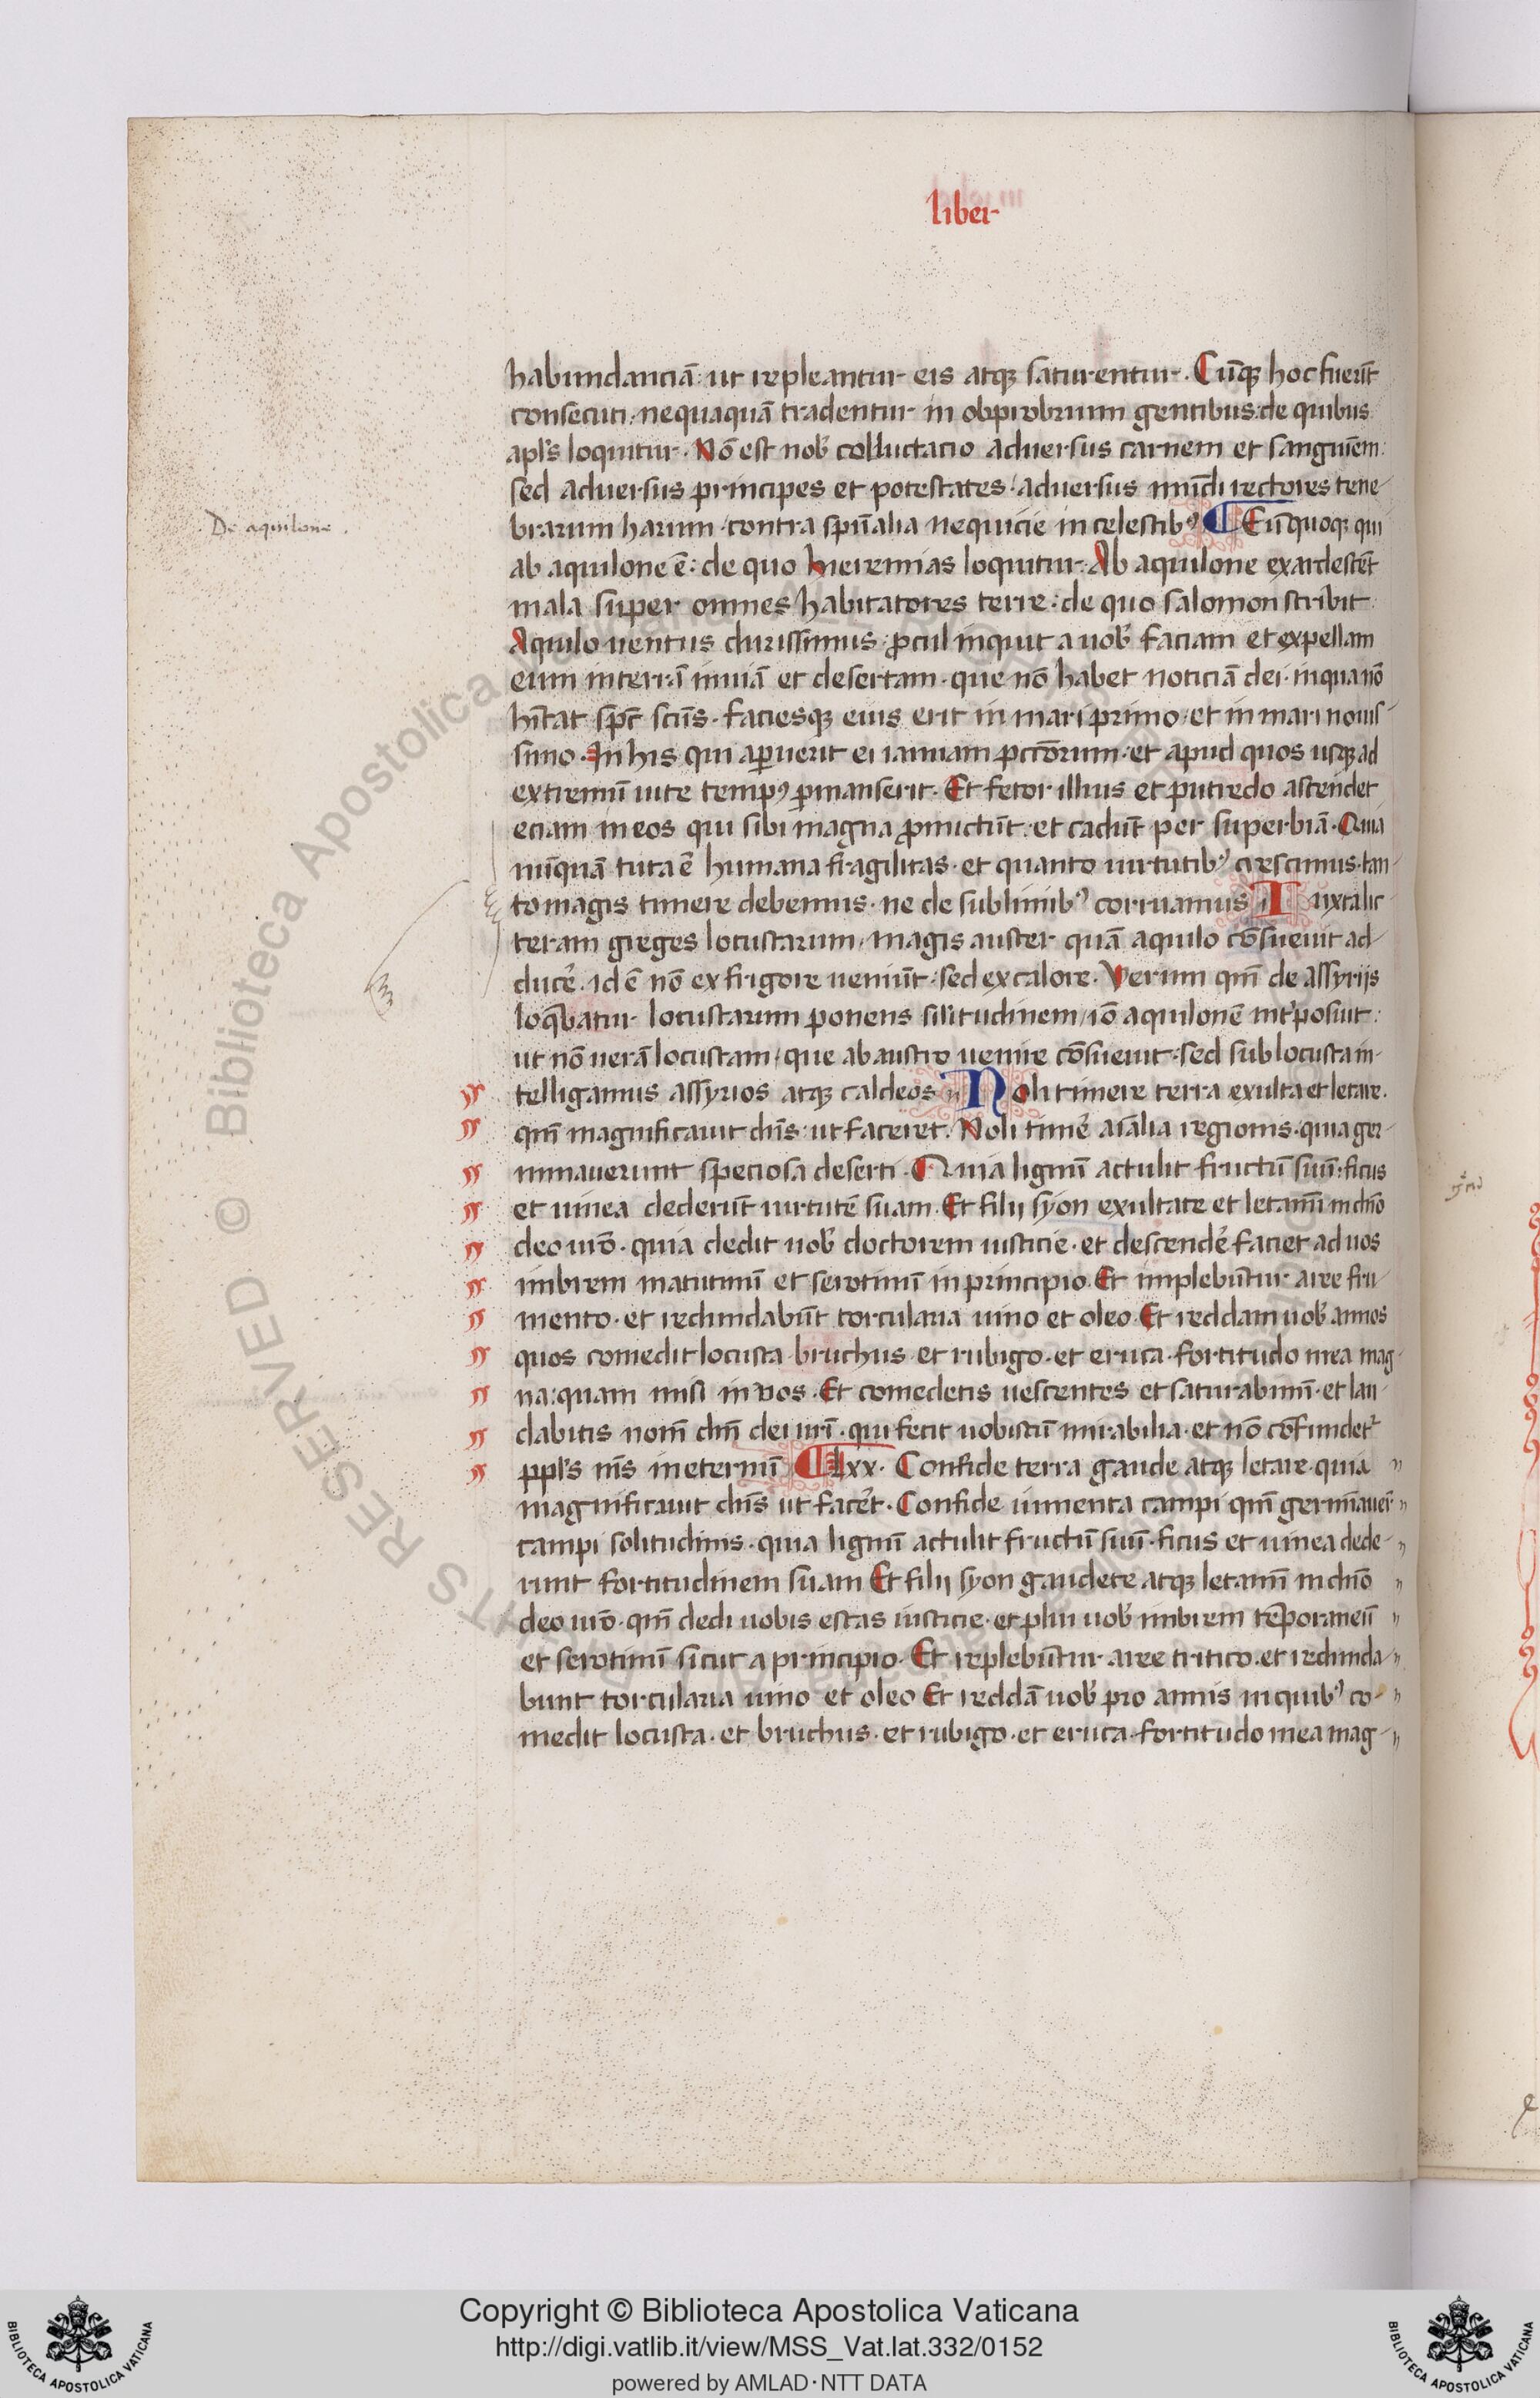 liber
habundanciā: ut repleantur eis atqꝫ saturentur. Cūqꝫ hoc fuerīt
consecuti: nequaquā tradentur in obprobrium gentibus: de quibus
apl's loquitur. Nō est nob' colluctacio aduersus carnem et sanguīem:
sed aduersus principes et potestates: aduersus mūdi rectores tene-
De aquilone.
brarum harum. contra sp̄ualia nequicie in celestibꝰ. Eūquoqꝫ qui
ab aquilone ē: de quo hieremias loquitur. Ab aquilone exardescēt
mala super omnes habitatores terre: de quo salomon scribit.
Aquilo uentus durissimus: ꝓcul inquit a uob' faciam et expellam
eum in terrā inuiā et desertam. que nō habet noticiā dei. in qua nō
hītat sp̄c scūs. faciesqꝫ eius erit in mari primo. et in mari nouis-
simo. In his qui aꝑuerūt ei ianuam pctōrum. et apud quos usqꝫ ad
extremū uite tempꝰ ꝑmanserit. Et fetor illius et putredo ascendet
eciam in eos qui sibi magna ꝓmictūt. et cadūt per superbiā. Quia
nūquā tuta ē humana fragilitas. et quanto uirtutibꝰ crescimus. tan-
to magis timere debemus. ne de sublimibꝰ corruamus. Iuxta lit-
teram greges locustarum, magis auster quā aquilo cōsueuit ad-
ducē. id ē nō ex frigore ueniūt. sed ex calore. Verum qm̄ de assyrijs
loq̄batur locustarum ponens sil'itudinem, iō aquilonē int'posuit:
ut nō uerā locustam, que ab austro uenire cōsueuit. sed sub locusta in-
telligamus assyrios atqꝫ caldeos. Noli timere terra exulta et letare.
qm̄ magnificauit dn̄s ut faceret. Noli timē aīalia regionis. quia ger-
minauerunt speciosa deserti. Quia lignū actulit fructū suū: ficus
et uinea dederūt uirtutē suam. Et filij syon exultate et letamī in dn̄o
deo ur̄o. quia dedit uob' doctorem iusticie. et descendē faciet ad uos
imbrem matutinū et serotinū in principio. Et implebūtur aree fru-
mento. et redundabūt torcularia uino et oleo. Et reddam uob' annos
quos comedit locusta bruchus et rubigo. et eruca. fortitudo mea mag-
na: quam misi in uos. Et comedetis uescentes et saturabimī. et lau-
dabitis nom̄ dn̄i dei uri. qui fecit uobiscū mirabilia. et nō cōfundet'
ppl's m̄s in eternū. lxx. Confide terra gaude atqꝫ letare. quia
magnificauit dn̄s ut facēt. Confide iumenta campi qm̄ germīauer̄
campi solitudinis. quia lignū actulit fructū suū. ficus et uinea dede-
runt fortitudinem suam Et filij syon gaudete atqꝫ letamī in dn̄o
deo ur̄o. qm̄ dedi uobis escas iusticie. et plui uob' imbrem tēporaneū
et serotinū sicut a principio. Et replebūtur aree tritico. et redunda-
bunt torcularia uino et oleo Et reddā uob' pro annis in quibꝰ co-
medit locusta. et bruchus. et rubigo. et eruca. fortitudo mea mag-
Copyright © Biblioteca Apostolica Vaticana
http://digi.vatlib.it/view/MSS_Vat.lat.332/0152
powered by AMLAD·NTT DATA